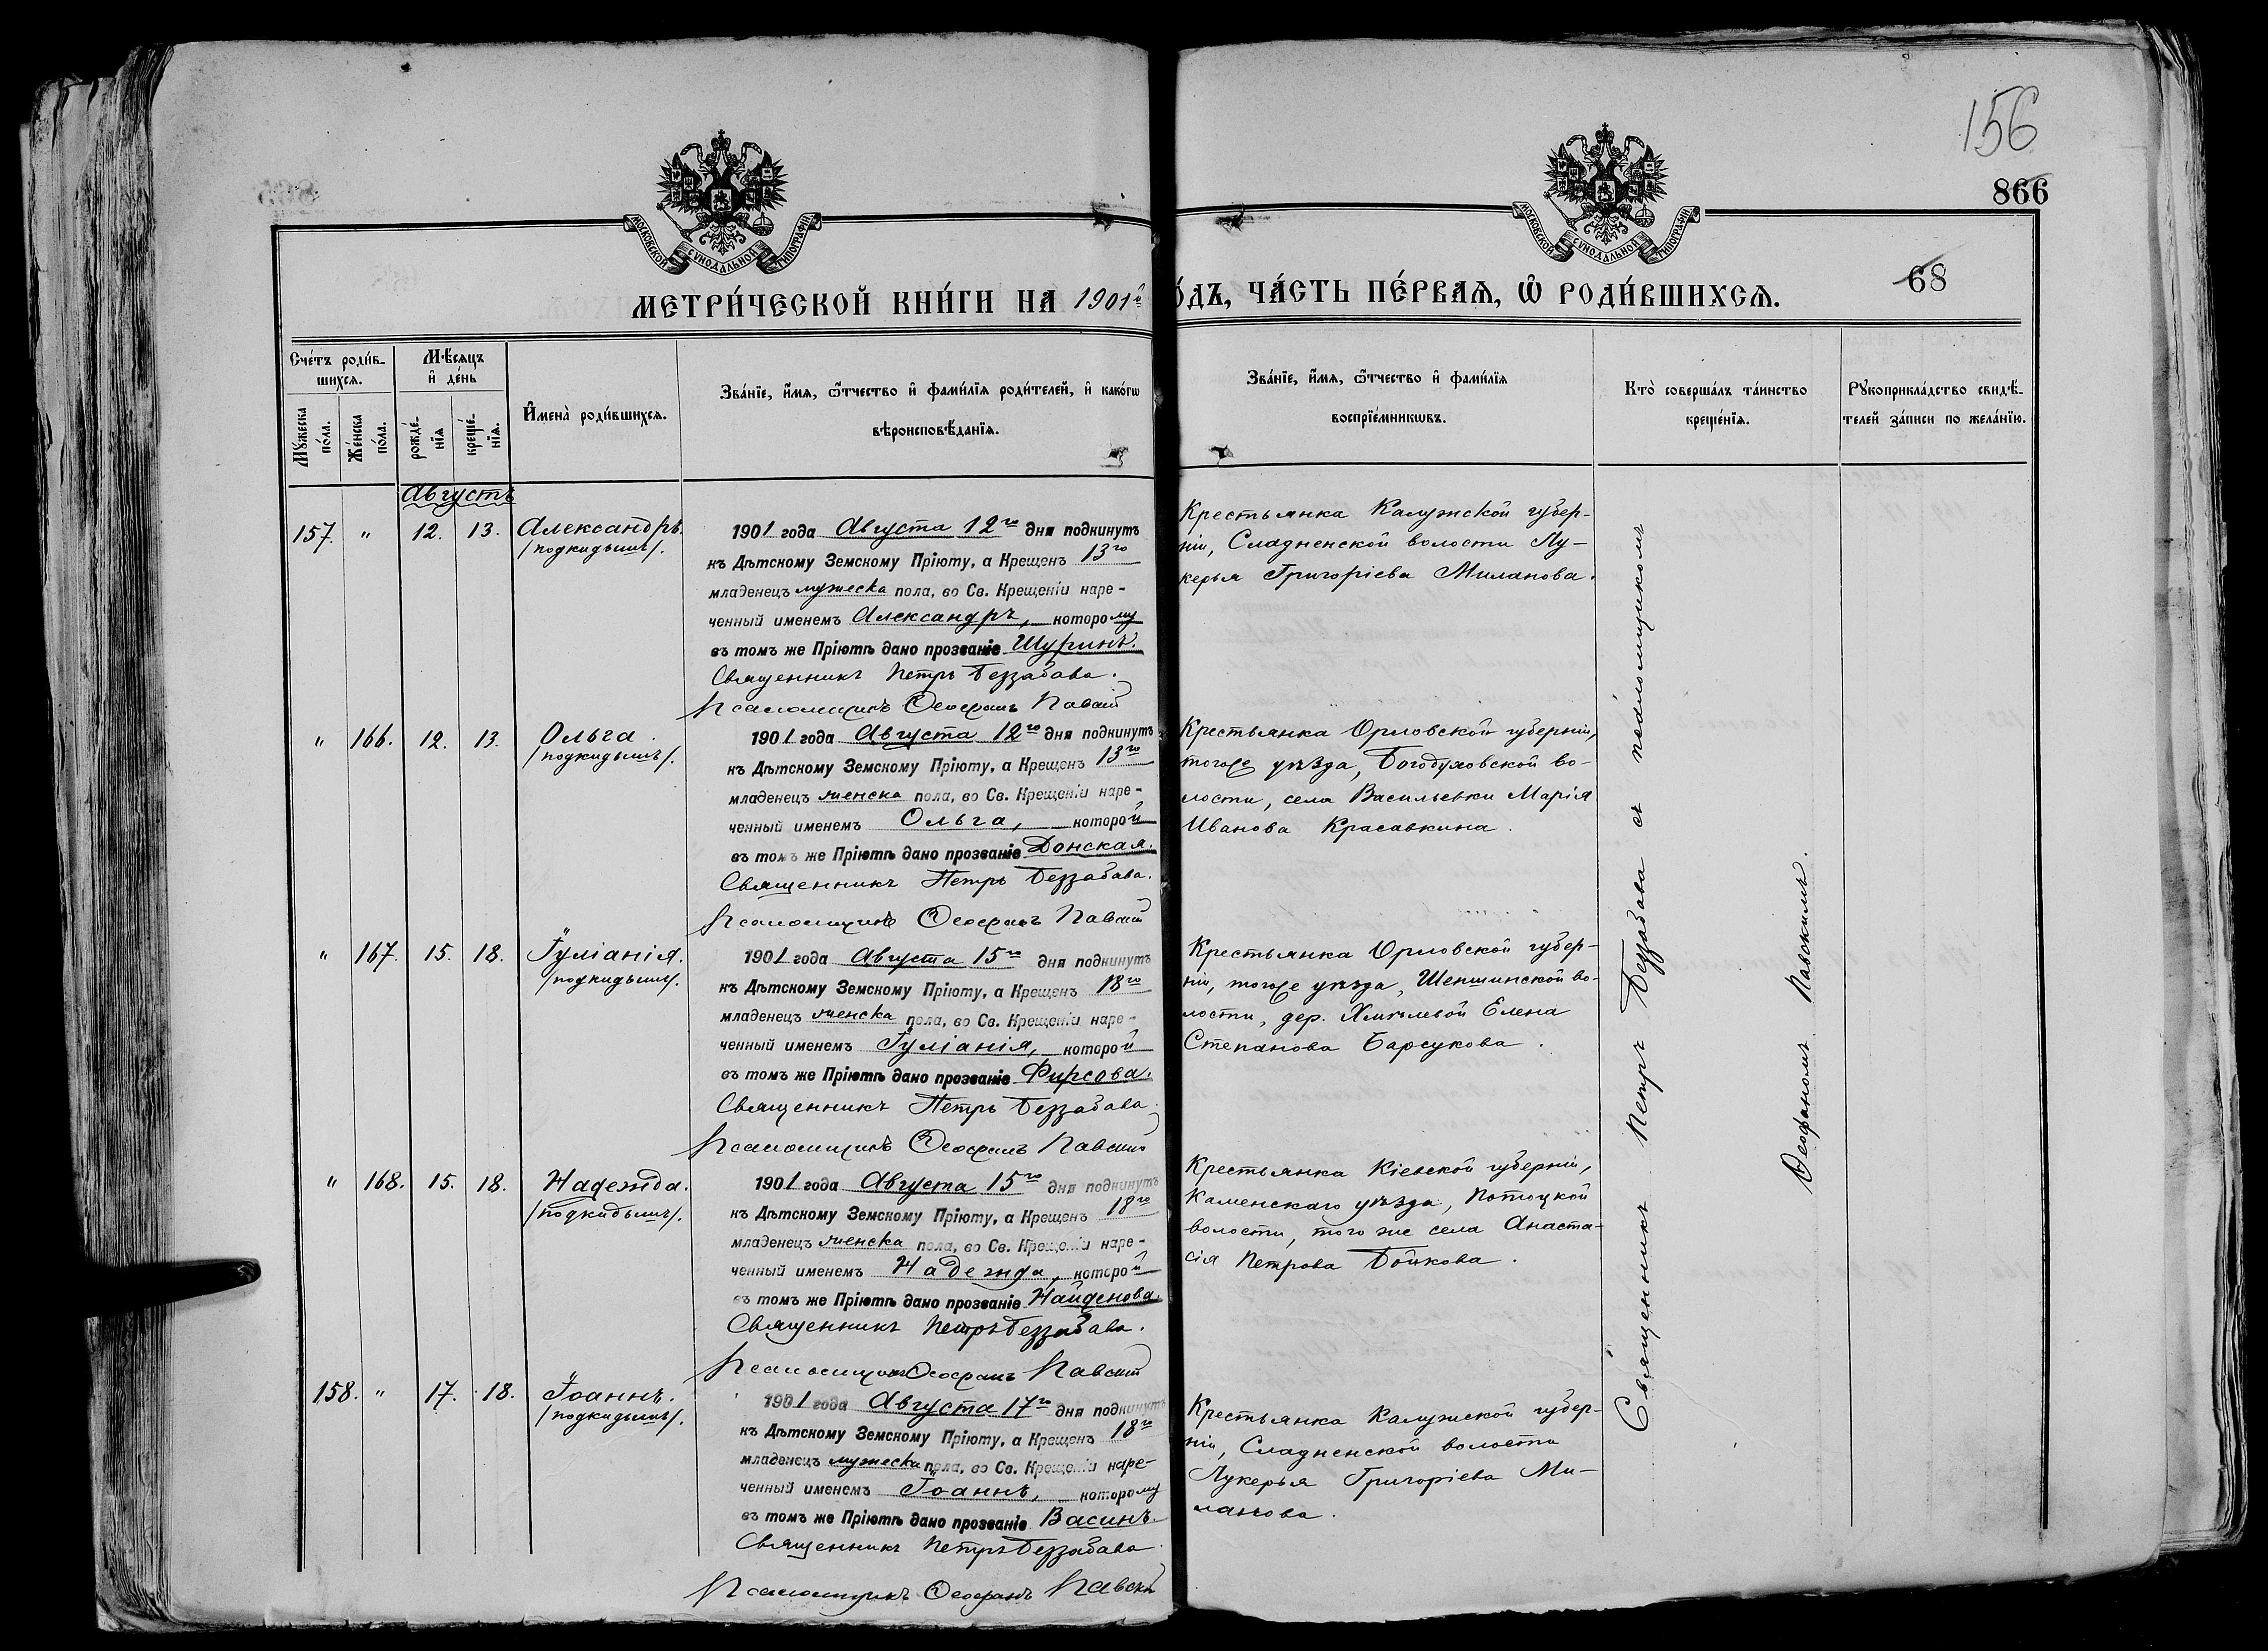 156
866
68
МОСКОВСКОЙ СУНОДАЛЬНОЙ ТИПОГРАФІИ
МОСКОВСКОЙ СУНОДАЛЬНОЙ ТИПОГРАФІИ
МЕТРИ́ЧЕСКОЙ КНИ́ГИ НА 1901й
О́ДЪ, ЧА́СТЬ ПЕ́РВАѦ, Ѡ҆ РОДИ́ВШИХСѦ.
Сче́тъ роди́в-
шихсѧ.
Мꙋ́жеска по́ла.
Же́нска по́ла.
Мѣ́сѧцъ
и҆ де́нь
рожде́-
нїѧ
креще́-
нїѧ.
И҆мена̀ роди́вшихсѧ.
Зва́нїе, и҆́мѧ, ѻ҆́тчество и҆ фами́лїѧ роди́телей, и҆ како́гѡ
вѣроисповѣ́данїѧ.
Зва́нїе, и҆́мѧ, ѻ҆́тчество и҆ фами́лїѧ
воспрїе́мникѡвъ.
Кто̀ соверша́лъ та́инство
креще́нїѧ.
Рꙋкоприкла́дство свидѣ́-
телей за́писи по жела́нїю.
Августъ
157. " 12. 13. Александръ.
/подкидышъ/.
1901 года Августа 12го дня подкинутъ
къ Дѣтскому Земскому Пріюту, а Крещенъ 13го
младенецъ мужеска пола, во Св. Крещеніи наре-
ченный именемъ Александръ, которому
въ томъ же Пріютѣ дано прозваніе Шуринъ.
Священникъ Петръ Беззабава.
Псаломщикъ Ѳеофанъ Павскій
Крестьянка Калужской губер-
ніи, Сладненской волости Лу-
керья Григоріева Миланова.
" 166. 12. 13. Ольга.
/подкидышъ/.
1901 года Августа 12го дня подкинутъ
къ Дѣтскому Земскому Пріюту, а Крещенъ 13го
младенецъ женска пола, во Св. Крещеніи наре-
ченный именемъ Ольга, которой
въ томъ же Пріютѣ дано прозваніе Донская.
Священникъ Петръ Беззабава.
Псаломщикъ Ѳеофанъ Павскій
Крестьянка Орловской губерніи,
тогоже уѣзда, Богодуховской во-
лости, села Васильевки Марія
Иванова Красавкина.
" 167. 15. 18. Іуліанія.
/подкидышъ/.
1901 года Августа 15го дня подкинутъ
къ Дѣтскому Земскому Пріюту, а Крещенъ 18го
младенецъ женска пола, во Св. Крещеніи наре-
ченный именемъ Іуліанія, которой
въ томъ же Пріютѣ дано прозваніе Фирсова.
Священникъ Петръ Беззабава.
Псаломщикъ Ѳеофанъ Павскій
Крестьянка Орловской губер-
ніи, тогоже уѣзда, Шеншинской во-
лости, дер. Хмѣлевой Елена
Степанова Барсукова.
" 168. 15. 18. Надежда.
/подкидышъ/.
1901 года Августа 15го дня подкинутъ
къ Дѣтскому Земскому Пріюту, а Крещенъ 18го
младенецъ женска пола, во Св. Крещеніи наре-
ченный именемъ Надежда, которой
въ томъ же Пріютѣ дано прозваніе Найденова.
Священникъ Петръ Беззабава.
Псаломщикъ Ѳеофанъ Павскій
Крестьянка Кіевской губерніи,
Каменскаго уѣзда, Потоцкой
волости, того же села Анаста-
сія Петрова Бойкова.
158. " 17. 18. Іоаннъ.
/подкидышъ/.
1901 года Августа 17го дня подкинутъ
къ Дѣтскому Земскому Пріюту, а Крещенъ 18го
младенецъ мужеска пола, во Св. Крещеніи наре-
ченный именемъ Іоаннъ, которому
въ томъ же Пріютѣ дано прозваніе Васинъ.
Священникъ Петръ Беззабава.
Псаломщикъ Ѳеофанъ Павскій
Крестьянка Калужской губер-
ніи, Сладненской волости
Лукерья Григоріева Ми-
ланова.
Священникъ Петръ Беззабава съ псаломщикомъ
Ѳеофаномъ Павскимъ.